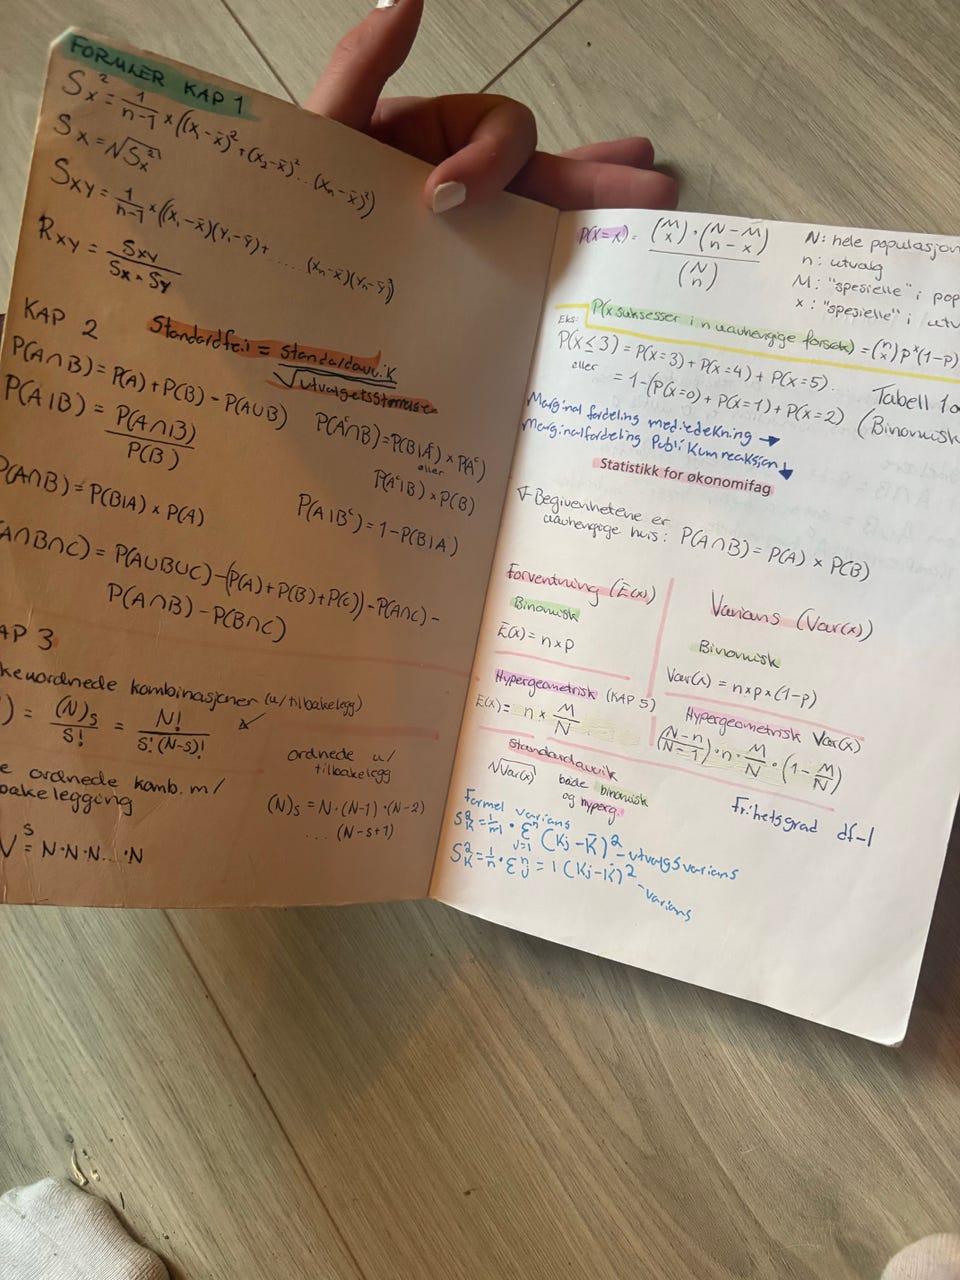 FORMLER KAP 1
Sx² = 1/n-1 × ((x₁-x̄)² + (x₂-x̄)² ... (xn-x̄)²)
Sx = √Sx²
Sxy = 1/n-1 × ((x₁-x̄)(y₁-ȳ)+ ..... (xn-x̄)(yn-ȳ))
Rxy = Sxy / Sx × Sy
KAP 2
Standardfeil = Standardavvik / √utvalgetsstørrelse
P(A∩B) = P(A) + P(B) - P(A∪B)
P(A|B) = P(A∩B) / P(B)
P(Aᶜ∩B) = P(B|Aᶜ) × P(Aᶜ)
eller
P(Aᶜ|B) × P(B)
P(A∩B) = P(B|A) × P(A)
P(A|Bᶜ) = 1 - P(B|A)
A∩B∩C) = P(A∪B∪C) - (P(A) + P(B) + P(C)) - P(A∩C) -
P(A∩B) - P(B∩C)
AP 3
ke uordnede kombinasjoner (u/tilbakelegg)
) = (N)s / s! = N! / s!(N-s)!
ordnede u/
tilbakelegg
(N)s = N·(N-1)·(N-2)
.... (N-s+1)
e ordnede komb. m/
bakelegging
Nˢ = N·N·N....·N
P(X=x) = (M x)·(N-M n-x) / (N n)
N: hele populasjon
n: utvalg
M: "spesielle" i pop
x: "spesielle" i utv
Eks:
P(x suksesser i n uavhengige forsøk) = (n x) pˣ(1-p)
P(X≤3) = P(X=3) + P(X=4) + P(X=5).
eller
= 1-(P(X=0) + P(X=1) + P(X=2)
Tabell 1a
(Binomisk
Marginal fordeling med. →
Marginalfordeling Publikumreaksjon ↓
Statistikk for økonomifag
Begivenhetene er
uavhengige hvis: P(A∩B) = P(A) × P(B)
Forventning (E(x))
Binomisk
E(x) = n×p
Varians (Var(x))
Binomisk
Var(x) = n×p×(1-p)
Hypergeometrisk (KAP 5)
E(x) = n × M/N
Hypergeometrisk Var(x)
(N-n / N-1)·n·M/N·(1-M/N)
Standardavvik
√Var(x) både binomisk
og hyperg.
Frihetsgrad df-1
Formel varians
S²K = 1/n-1 · Σⁿj=1 (Kj - K̄)² - utvalgsvarians
S²K = 1/n · Σⁿj = 1 (Kj-K̄)² - varians